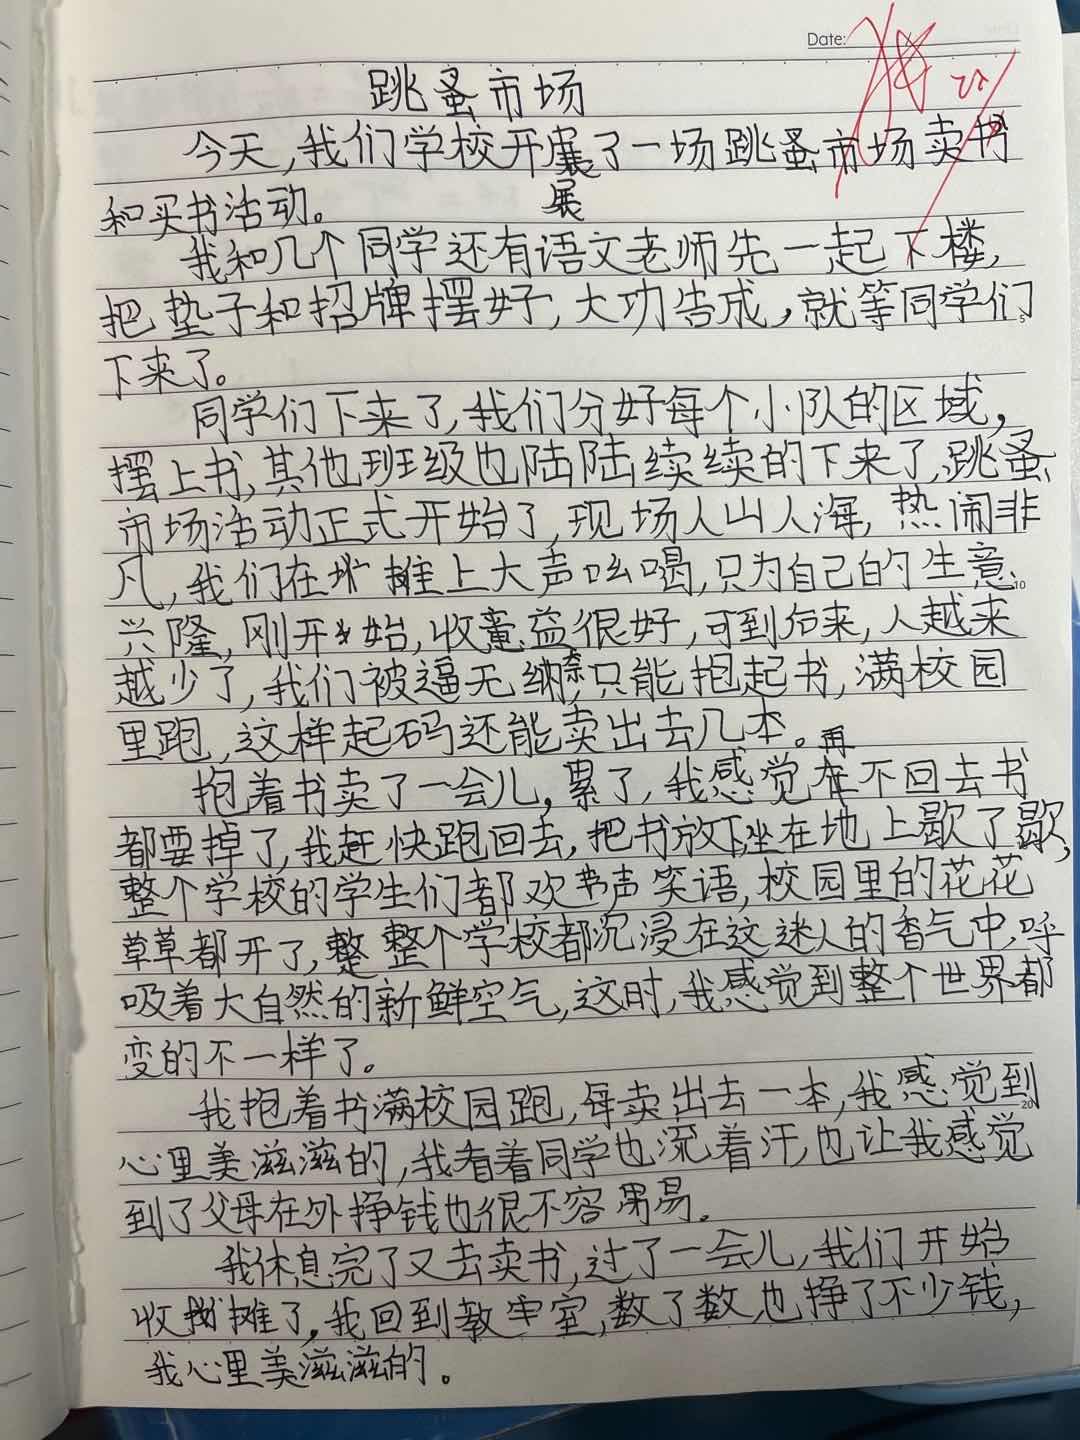 Date:
跳蚤市场
今天,我们学校开展了一场跳蚤市场卖书
展
和买书活动。
我和几个同学还有语文老师先一起下楼,
把垫子和招牌摆好,大功告成,就等同学们
下来了。
同学们下来了,我们分好每个小队的区域,
摆上书,其他班级也陆陆续续的下来了,跳蚤
市场活动正式开始了,现场人山人海,热闹非
凡,我们在摊上大声吆喝,只为自己的生意
兴隆,刚开始,收益很好,可到后来,人越来
越少了,我们被逼无奈,只能抱起书,满校园
里跑,这样起码还能卖出去几本。
抱着书卖了一会儿,累了,我感觉再不回去书
都要掉了,我赶快跑回去,把书放下坐在地上歇了歇,
整个学校的学生们都欢声笑语,校园里的花花
草草都开了,整个学校都沉浸在这迷人的香气中,呼
吸着大自然的新鲜空气,这时,我感觉到整个世界都
变的不一样了。
我抱着书满校园跑,每卖出去一本,我感觉到
心里美滋滋的,我看着同学也流着汗,也让我感觉
到了父母在外挣钱也很不容易。
我休息完了又去卖书,过了一会儿,我们开始
收摊了,我回到教室,数了数也挣了不少钱,
我心里美滋滋的。
5
10
20